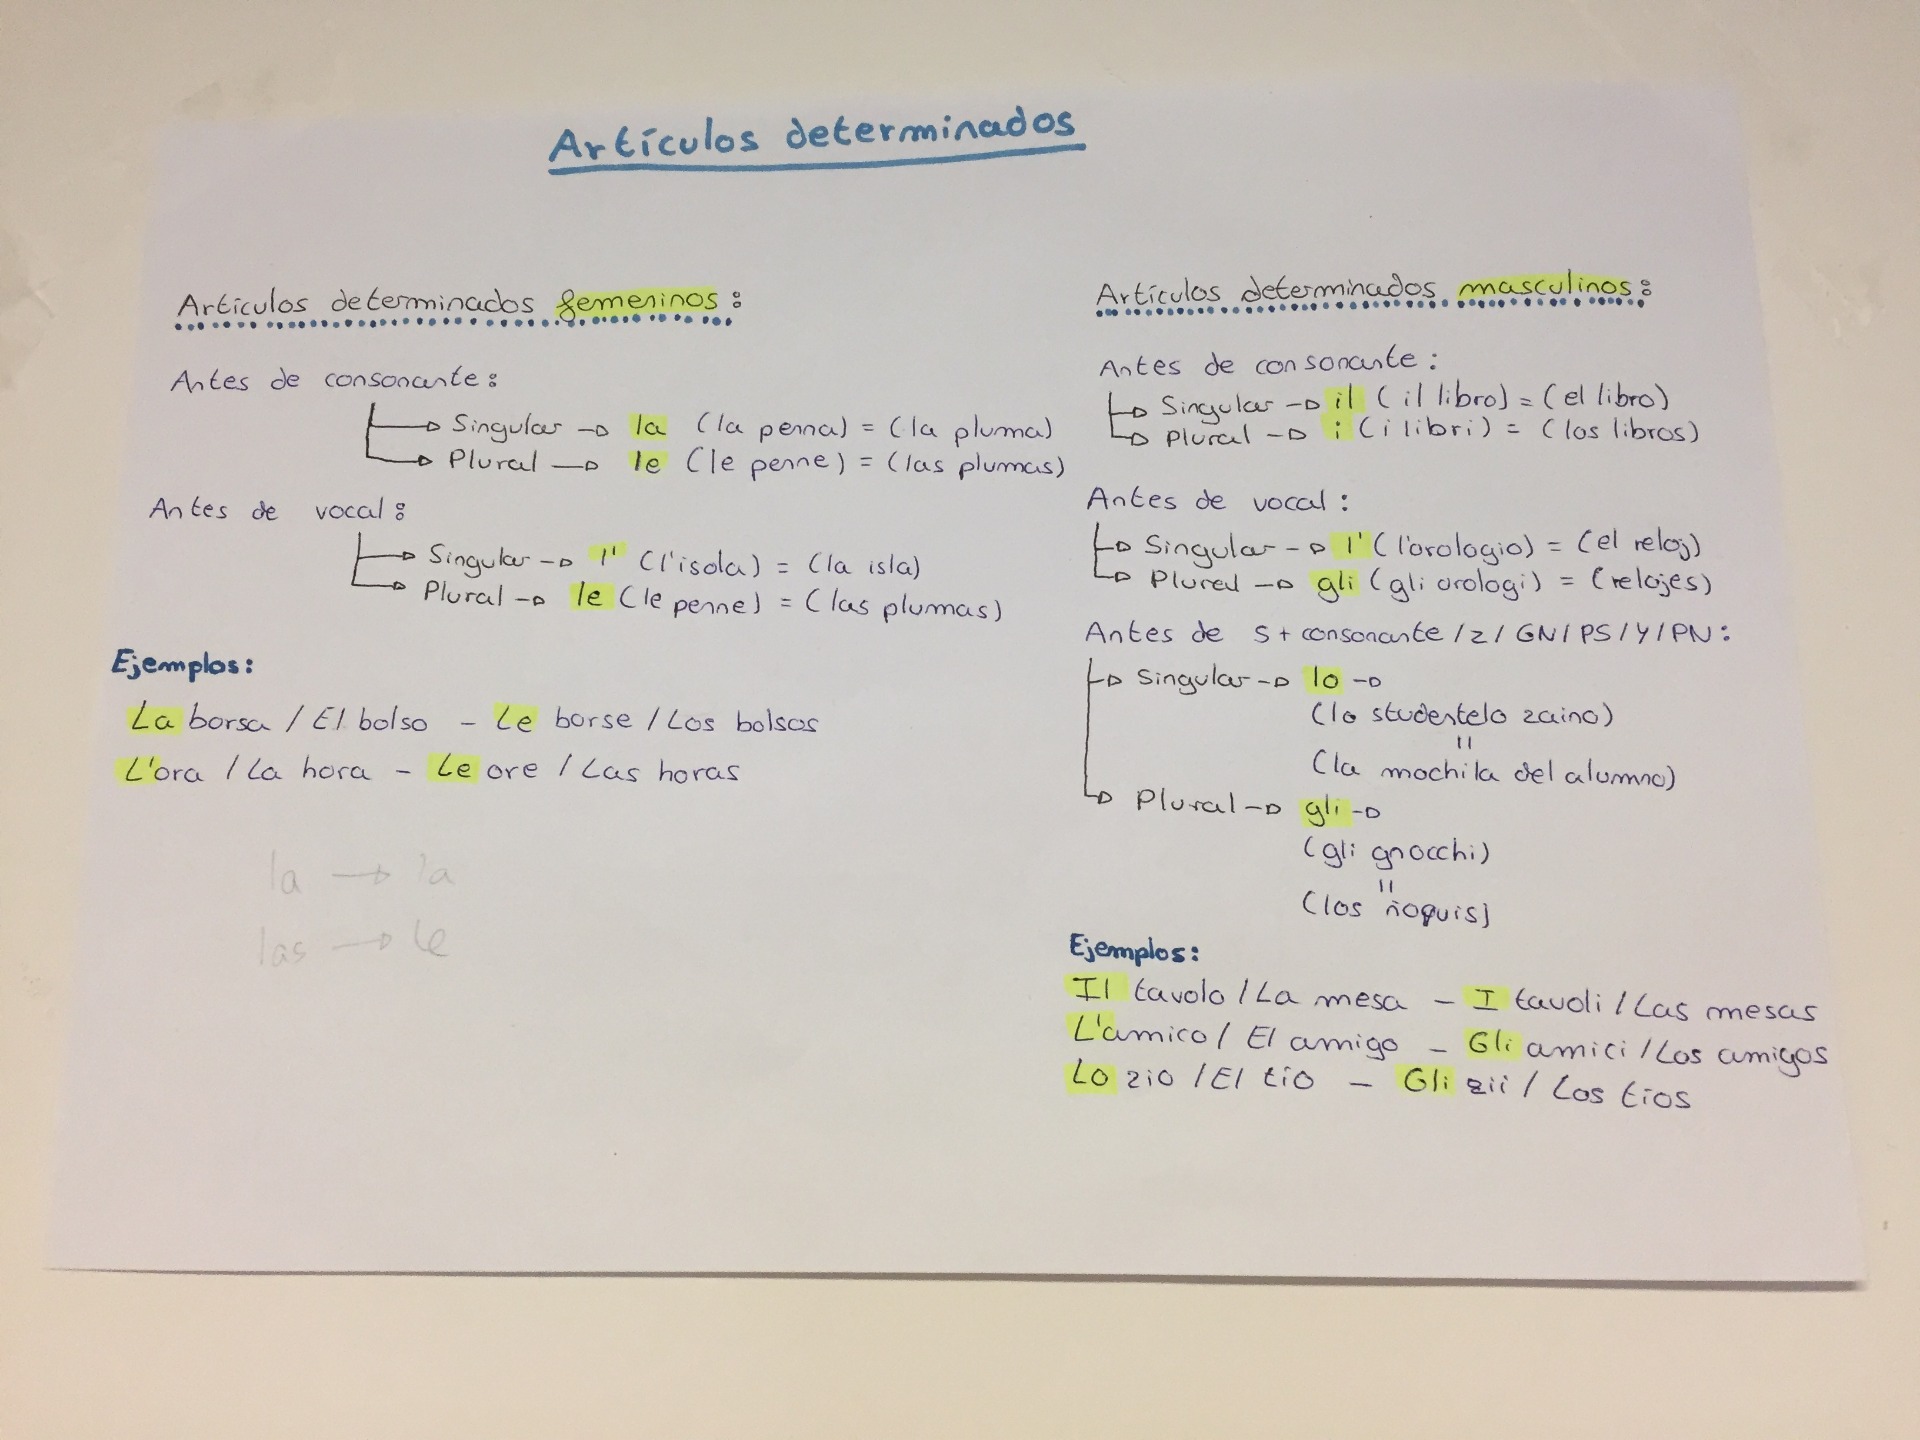 Artículos determinados
Artículos determinados femeninos:
Antes de consonante:
Singular → la (la penna) = (la pluma)
Plural → le (le penne) = (las plumas)
Antes de vocal:
Singular → l' (l'isola) = (la isla)
Plural → le (le penne) = (las plumas)
Ejemplos:
La borsa / El bolso - Le borse / Los bolsos
L'ora / La hora - Le ore / Las horas
la → la
las → le
Artículos determinados masculinos:
Antes de consonante:
Singular → il (il libro) = (el libro)
Plural → i (i libri) = (los libros)
Antes de vocal:
Singular → l' (l'orologio) = (el reloj)
Plural → gli (gli orologi) = (relojes)
Antes de s + consonante / z / GN / PS / Y / PN:
Singular → lo →
(lo studentelo zaino)
=
(la mochila del alumno)
Plural → gli →
(gli gnocchi)
=
(los ñoquis)
Ejemplos:
Il tavolo / La mesa - I tavoli / Las mesas
L'amico / El amigo - Gli amici / Los amigos
Lo zio / El tío - Gli zii / Los tios